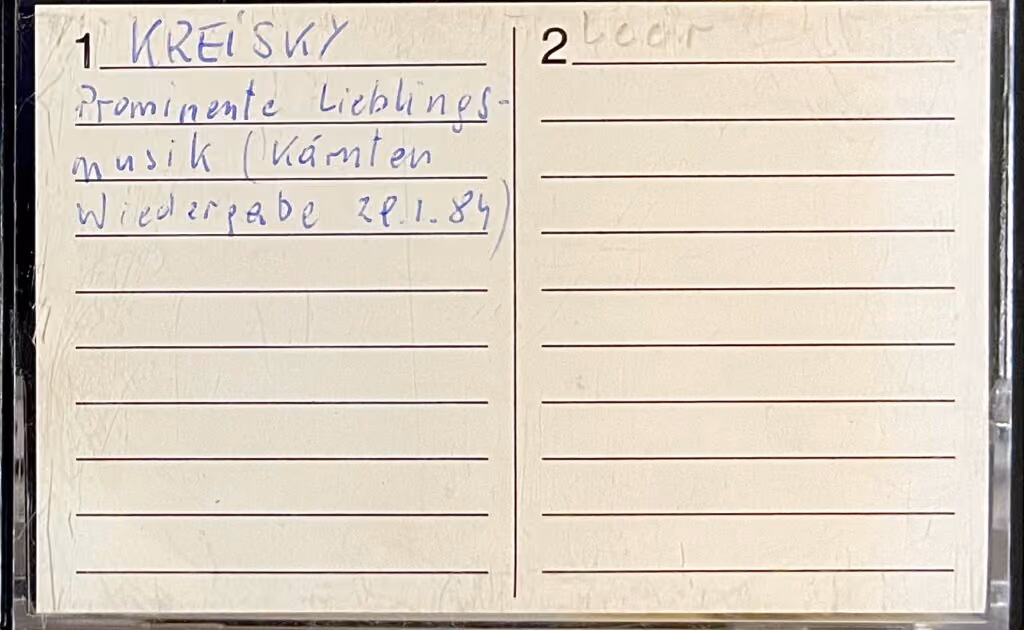 1 KREISKY
Prominente Lieblings-
musik (Kärnten
Wiedergabe 28.1.84)
2 Leer